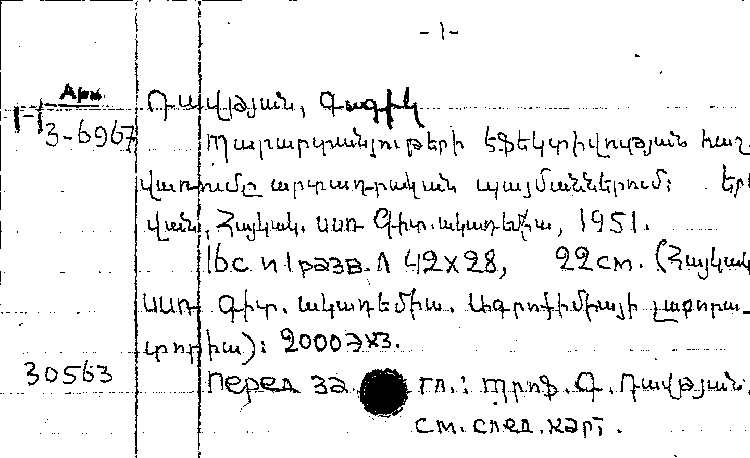 -1-
Арм
Դավթյան, Գագիկ
3-6967
Պարարտանյութերի էֆեկտիվության հաշ-
վառումը արտադրական պայմաններում: Երե
վան, Հայկակ. ՍՍՌ Գիտ. ակադեմիա, 1951.
16с. и 1 разв. л 42x28, 22см. (Հայկակ
ՍՍՌ Գիտ. ակադեմիա. Ագրոքիմիայի լաբորա-
տորիա): 2000 экз.
30563
Перед за гл.: Պրոֆ. Գ. Դավթյան.
см. след. карт.